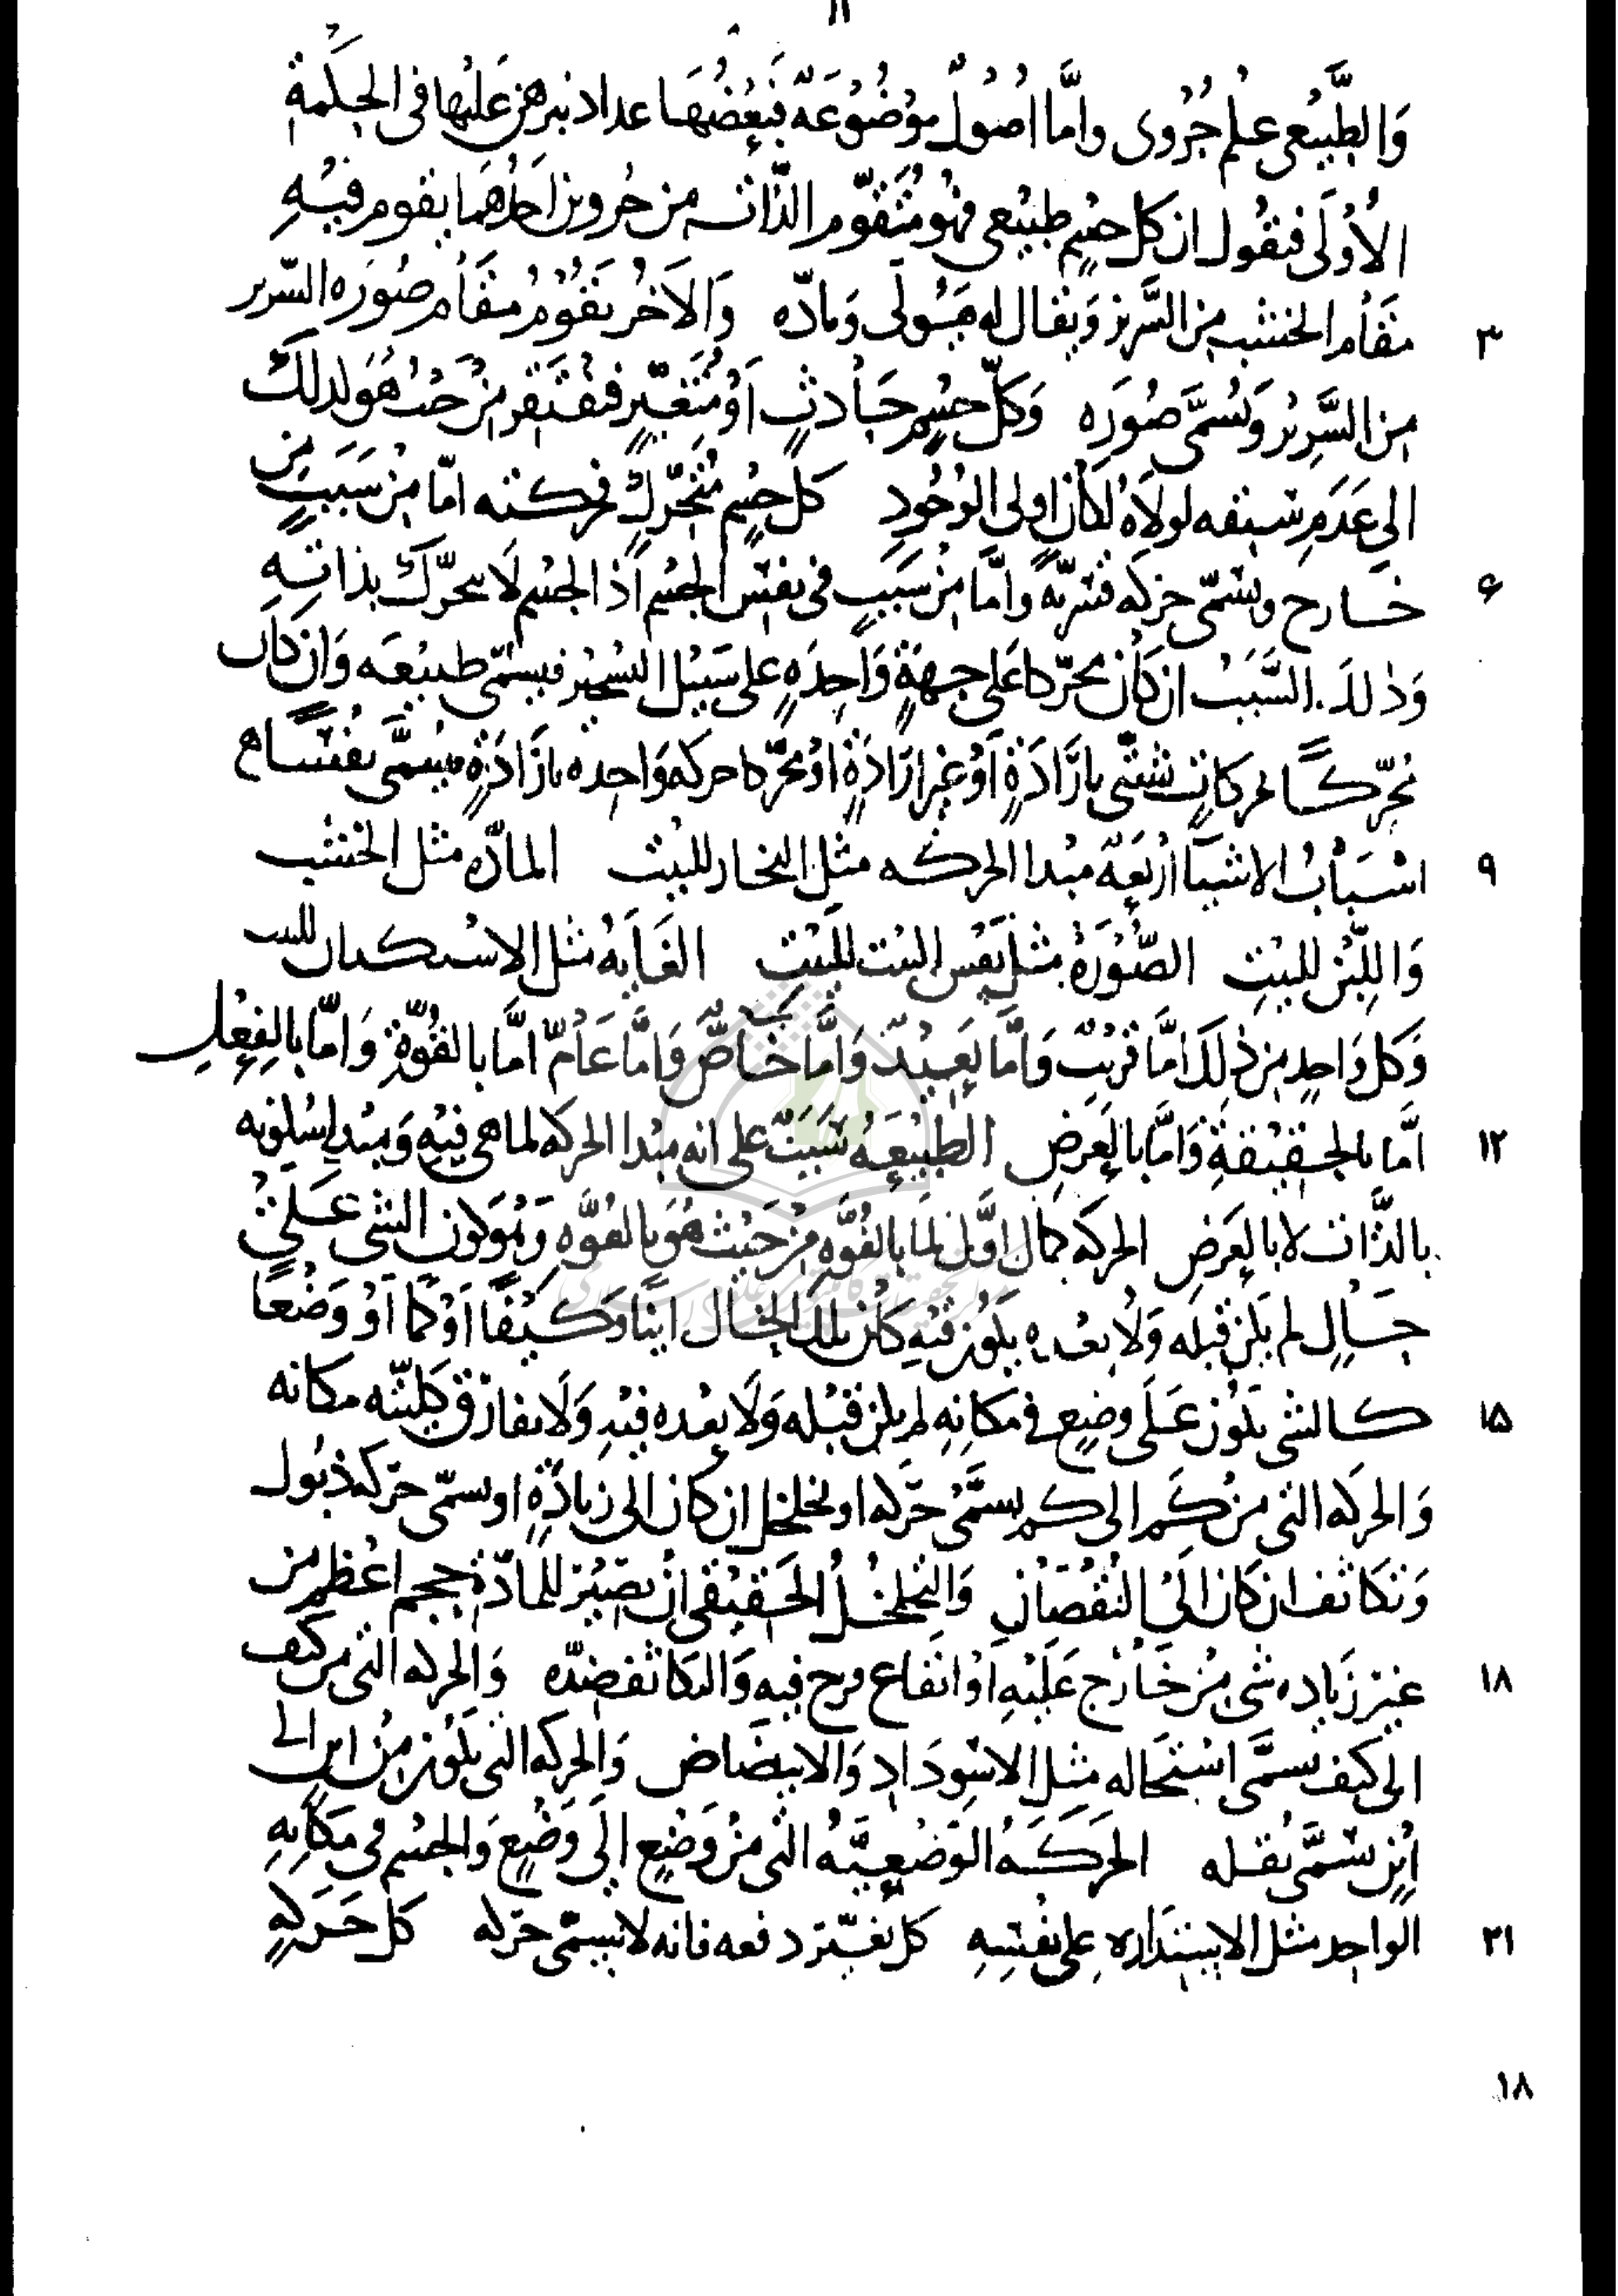 ١١
وَالطَّبِيْعى عِلْم جُزْوى وامَّا اُصُولٌ مَوْضُوْعَهٌ فَبَعْضُهَا عداد نبرهن عَلَيْها فى الحِكَمة
الأُوْلَى فنقُول ان كل جِسْمٍ طبيْعى فهُو مُتَقَوّم الذّات من جُزوين اَحدُهُمَا يقوم فيْهِ
٣ مَقَاْم الخشب مِن السَّرير وَيقال له هَيُولَى وَمادّه وَالآخَر يَقُوْمُ مَقَاْم صُوْرَه السّرير
مِن السَّرِيْر وَيُسَمَّى صُوْرَه وَكلّ جسْمٍ حَاْدثٍ اَوْ مُتَغَيّرٍ فيَفْتَقر مِنْ حَيْث هُوَ لدلكَ
الى عَدَمٍ سَبَقه لولاَهُ لكَانَ اولى الوُجُودِ كل جسْم مُتحَرّكٍ فحركته امّا مِنْ سَبَبٍ مِن
٦ خَارج وتسَمّى حركه قَسْريّهً وامَّا مِنْ سَبَبٍ فى نفسْ الجسْم اذ الجسْم لَا يتحرّك بذاتِهِ
وَذٰلكَ السَّبَبْ ان كَان محرّكا عَلى جهَةٍ وَاحِدَهٍ على سَبيْل التسْخير فيسَمّى طبيْعَه وَان كَان
مُحرّكًا لحركاتٍ شَتّى بارَادَةٍ اَوْ غير ارَادَةٍ اوْ محَرّكا حركه وَاحِده بارَادَةٍ فيسَمَّى نفْسًا ع
٩ اسْبَابُ الاشيَآ ارْبَعَهٌ مبْدا الحركه مثل النجّار للبيْت المادّه مثل الخشب
وَاللِبْن للبيْتِ الصُّوْرَهُ مثل نَفْس البيْت للبَيْتِ الغَايَهُ مثل الاسْتكنان للبيت
وَكل وَاحِدٍ مِن ذٰلِكَ امَّا قَرْيبٌ وَامَّا بَعِيْدٌ وَامَّا خَاصٌّ وَامَّا عَامٌّ امَّا بالقُوّةِ وَامّا بالفِعْلِ
١٢ امَّا بالحقِيْقةِ وَامَّا بالعَرَضِ الطبِيْعَهُ سَبَبٌ على انه مبْدا الحركه لما هى فيْهِ وَمبْدا لسُكونه
بالذَّات لا بالعَرَضِ الحركه كمال اوَّل لمَا بالقُوَّهِ مِنْ حَيْث هُوَ بالقوّهِ وَهُوَ كون الشى عَلَىْ
حَالٍ لم يَكن قبْله وَلا بعْده يكُوْن فيْهِ كان تلكَ الحَال ايْنًا وَكيْفًا اَوْ كمًّا اَوْ وَضْعًا
١٥ كالشى يكُوْن عَلَى وضع فى مكانِهِ لم يكن قَبْله وَلَا بعْده فيْهِ وَلَا يفارْق كليّته مكانه
وَالحركه التى مِنْ كَم الى كم يسَمَّىْ حرَكه او تخلخل ان كان الى زيادَةٍ او يسمّى حرَكه ذبُول
وَتكاثف ان كان الَىْ النُقْصَانِ وَالتخلخُلُ الحَقيْقى انْ يصيْر للمادّة حجم اعْظم مِن
١٨ غيْر زيَاده شى مِنْ خَارْج عَلَيْهِ اَوْ انفاع فرج فيهِ وَالتكاثف ضدّه وَالحركه التى من كيف
الى كيف تسَمَّى اسْتحَاله مثل الاسْوِدَادِ وَالابيضَاض وَالحركه التى يكُوْن مِنْ اين الى
اَيْنٍ تسَمَّى نُقله الحَرَكَهُ الوَضْعيَّهُ التى مِنْ وَضْعٍ الَى وَضْعٍ وَالجسْم فى مَكانِهِ
٢١ الواحِد مثل الاسْتدَاره عِلى نفْسِهِ كل تغَيّر دفعه فانه لا يسَمّى حرَكه كل حَرَكهٍ
١٨